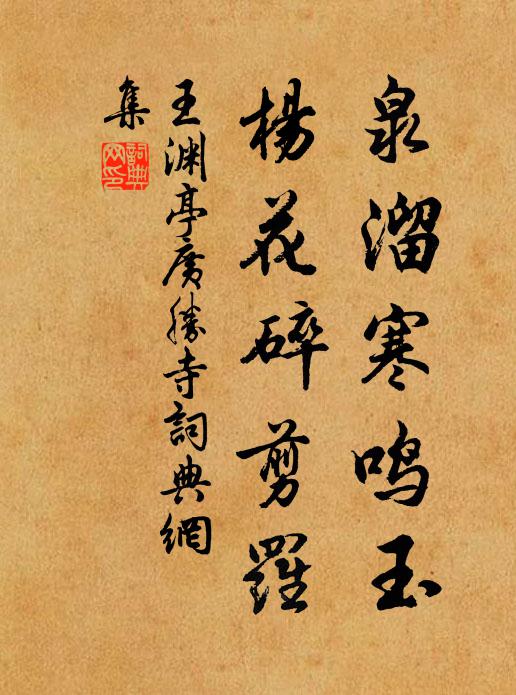 泉溜寒鸣玉
楊花碎剪羅
王渊亭廣勝寺詞典網
集
詞典網印